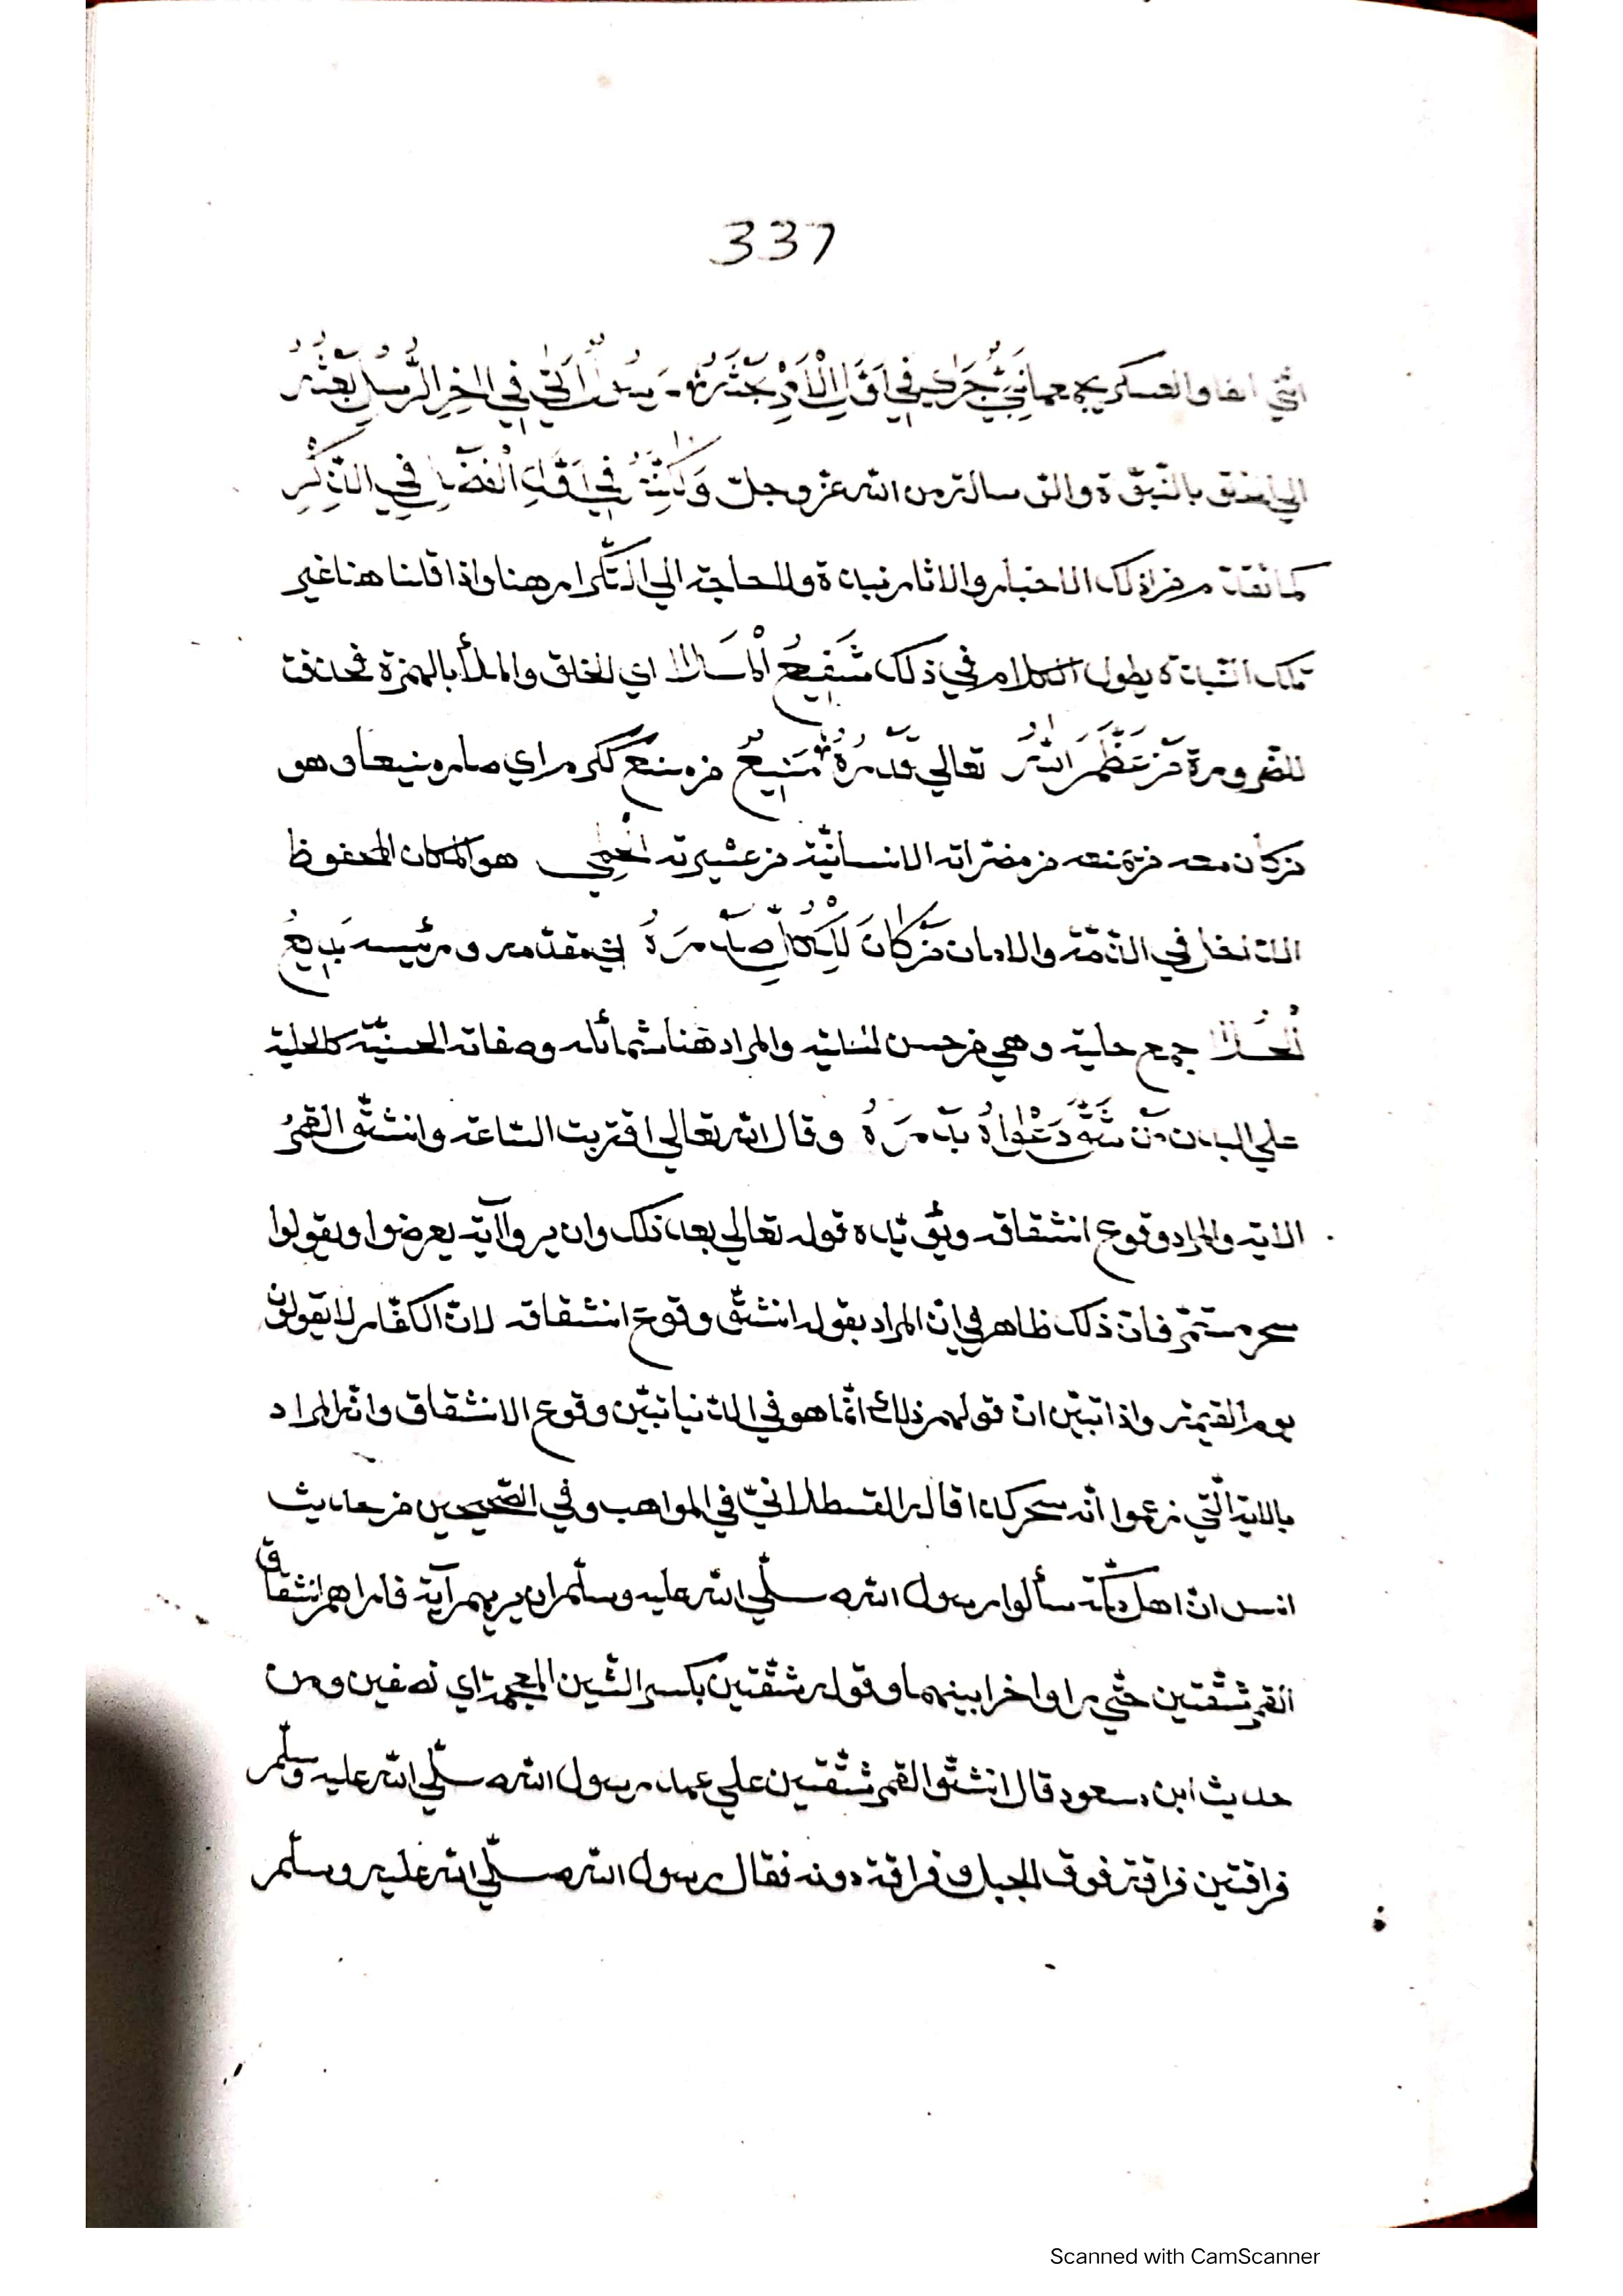 337
اثني الفا والعسكر يجمعها نَبِيٌّ جَرَى فِي أَوَّلِ الْأَمْرِ بَعْثُهُ رَسُولٌ أَتَى فِي اٰخِرِ الرُّسْلِ بَعْثُهُ
الي الخلق بالنّبوّة والرّسالة من الله عزّ وجلّ فِي الذِّكْرِ
كما نقلت من ذلك الاخبار والاثار نبذة وللحاجة الي التّكرار هنا واذا قلنا هنا غير
تلك النّبذة يطول الكلام في ذلك شَفِيعُ الْمَلَا اي الخلق والملأ بالهمزة فحذفت
للضّرورة مَنْ عَظَّمَ اللّٰهُ تعالي قَدْرَهُ مَنِيعٌ من منع ككرم اي صار منيعا وهو
من كان معه من يمنعه من مضرّاته الانسانيّة من عشيرته الْحِمٰي هو المكان المحفوظ
الدّاخل في الذّمّة والامان مَنْ كَانَ لِلْكُلِّ صَدْرَهُ اي مقدّمه ورئيسه بَدِيعُ
الْحُلَا جمع حلية وهي من حسن والمراد هنا شمائله وصفاته الحسنيّة كالحلية
علي البدن مَنْ شَقَّ دَعْوَاهُ بَدْرَهُ وقال الله تعالي اقتربت السّاعة وانشقّ القمرُ
الاية والمراد وقوع انشقاقه ويؤيّده قوله تعالي بعد ذلك وان يروا آية يعرضوا ويقولوا
سحر مستمرّ فانّ ذلك ظاهر في انّ المراد بقوله انشقّ وقوع انشقاقه لانّ الكفّار لا يقولون
يوم القيمة واذا تبيّن انّ قولهم ذلك انّما هو في الدّنيا تبيّن وقوع الانشقاق وانّه المراد
بالاية الّتي زعموا أنّه سحر كذا قاله القسطلانيّ في المواهب وفي الصّحيحين من حديث
انس انّ اهل مكّة سألوا رسول الله صلّي الله عليه وسلّم ان يريهم آية فاراهم انشقاق
القمر شقّتين حتّي راوا حرا بينهما وقوله شقّتين بكسر الشّين المعجمة اي نصفين ومن
حديث ابن مسعود قال انشقّ القمر شقّتين علي عهد رسول الله صلّي الله عليه وسلّم
فراقتين فراقة فوق الجبل وفراقة دونه فقال رسول الله صلّي الله عليه وسلّم
Scanned with CamScanner